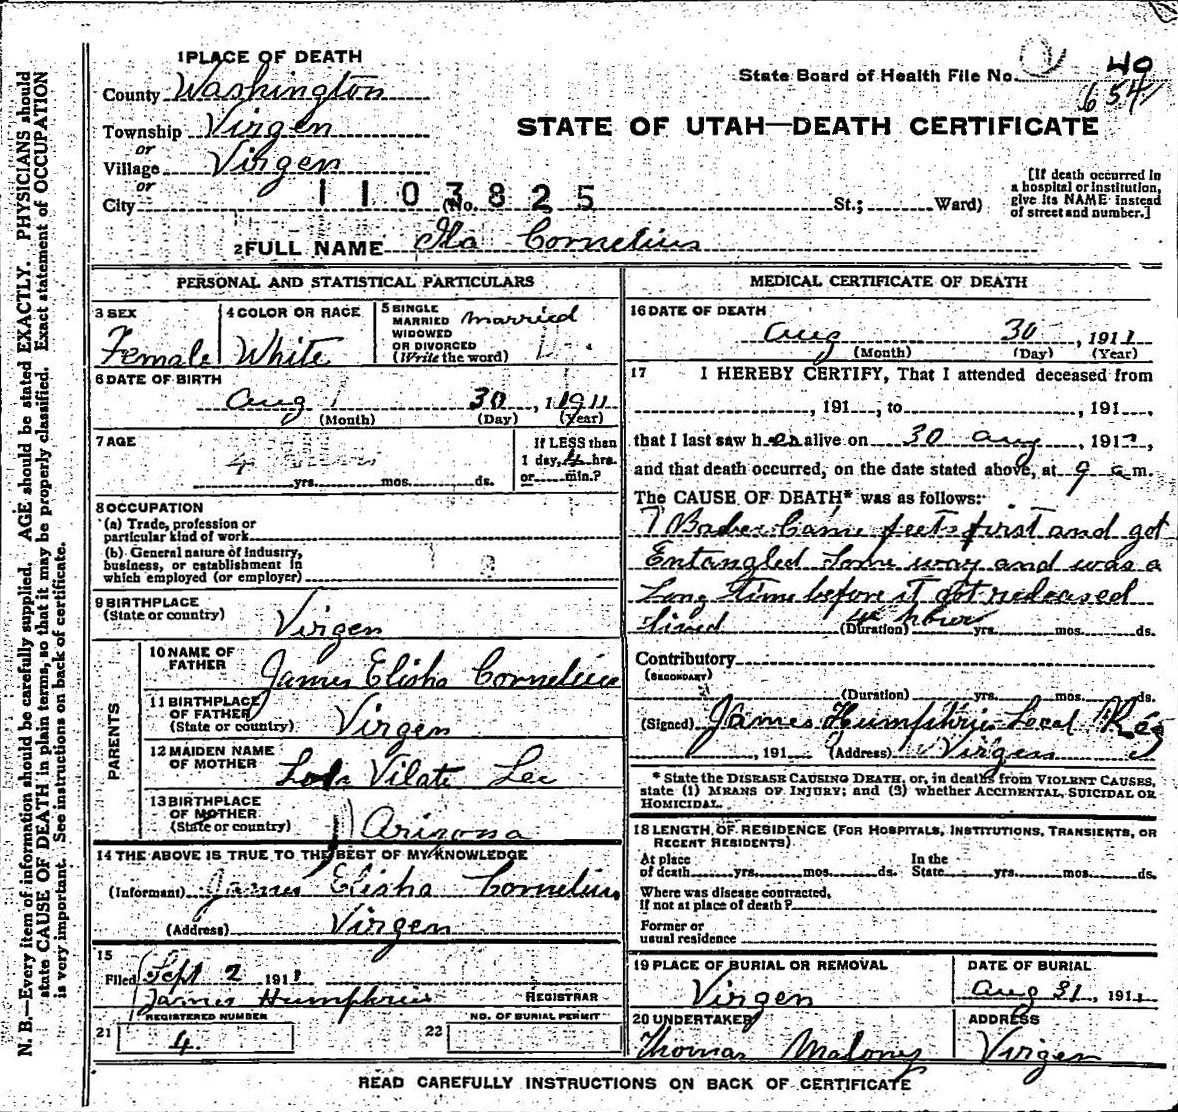 1 PLACE OF DEATH
County Washington
Township Virgen
or
Village Virgen
or
City (No. St.; Ward)
1103825
State Board of Health File No. 49
654
STATE OF UTAH—DEATH CERTIFICATE
[If death occurred in
a hospital or institution,
give its NAME instead
of street and number.]
2 FULL NAME Ila Cornelius
PERSONAL AND STATISTICAL PARTICULARS
3 SEX
Female
4 COLOR OR RACE
White
5 SINGLE
MARRIED married
WIDOWED
OR DIVORCED
(Write the word)
6 DATE OF BIRTH
Aug 30, 1911
(Month) (Day) (Year)
7 AGE
4
yrs. mos. ds.
If LESS than
1 day, 4 hrs.
or min.?
8 OCCUPATION
(a) Trade, profession or
particular kind of work
(b) General nature of industry,
business, or establishment in
which employed (or employer)
9 BIRTHPLACE
(State or country)
Virgen
PARENTS
10 NAME OF
FATHER
James Elisha Cornelius
11 BIRTHPLACE
OF FATHER
(State or country)
Virgen
12 MAIDEN NAME
OF MOTHER
Lola Vilate Lee
13 BIRTHPLACE
OF MOTHER
(State or country)
Arizona
14 THE ABOVE IS TRUE TO THE BEST OF MY KNOWLEDGE
(Informant) James Elisha Cornelius
(Address) Virgen
15
Filed Sept 2 1911
James Humphries REGISTRAR
REGISTERED NUMBER
21 4.
NO. OF BURIAL PERMIT
22
MEDICAL CERTIFICATE OF DEATH
16 DATE OF DEATH
Aug 30, 1911
(Month) (Day) (Year)
17 I HEREBY CERTIFY, That I attended deceased from
, 191 , to , 191 ,
that I last saw her alive on 30 aug, 191 ,
and that death occurred, on the date stated above, at 9 a m.
The CAUSE OF DEATH* was as follows:
Came feets first and got
Entangled Some way and was a
Long time before it got released
lived 4 hours
(Duration) yrs. mos. ds.
Contributory
(SECONDARY)
(Duration) yrs. mos. ds.
(Signed) James Humphries Local Reg
, 191 (Address) Virgen
* State the DISEASE CAUSING DEATH, or, in deaths from VIOLENT CAUSES,
state (1) MEANS OF INJURY; and (3) whether ACCIDENTAL, SUICIDAL OR
HOMICIDAL.
18 LENGTH OF RESIDENCE (FOR HOSPITALS, INSTITUTIONS, TRANSIENTS, OR
RECENT RESIDENTS).
At place In the
of death yrs. mos. ds. State yrs. mos. ds.
Where was disease contracted,
if not at place of death?
Former or
usual residence
19 PLACE OF BURIAL OR REMOVAL
Virgen
DATE OF BURIAL
Aug 31, 1911
20 UNDERTAKER
Thomas Maloney
ADDRESS
Virgen
READ CAREFULLY INSTRUCTIONS ON BACK OF CERTIFICATE
N. B.—Every item of information should be carefully supplied. AGE should be stated EXACTLY. PHYSICIANS should
state CAUSE OF DEATH in plain terms, so that it may be properly classified. Exact statement of OCCUPATION
is very important. See instructions on back of certificate.